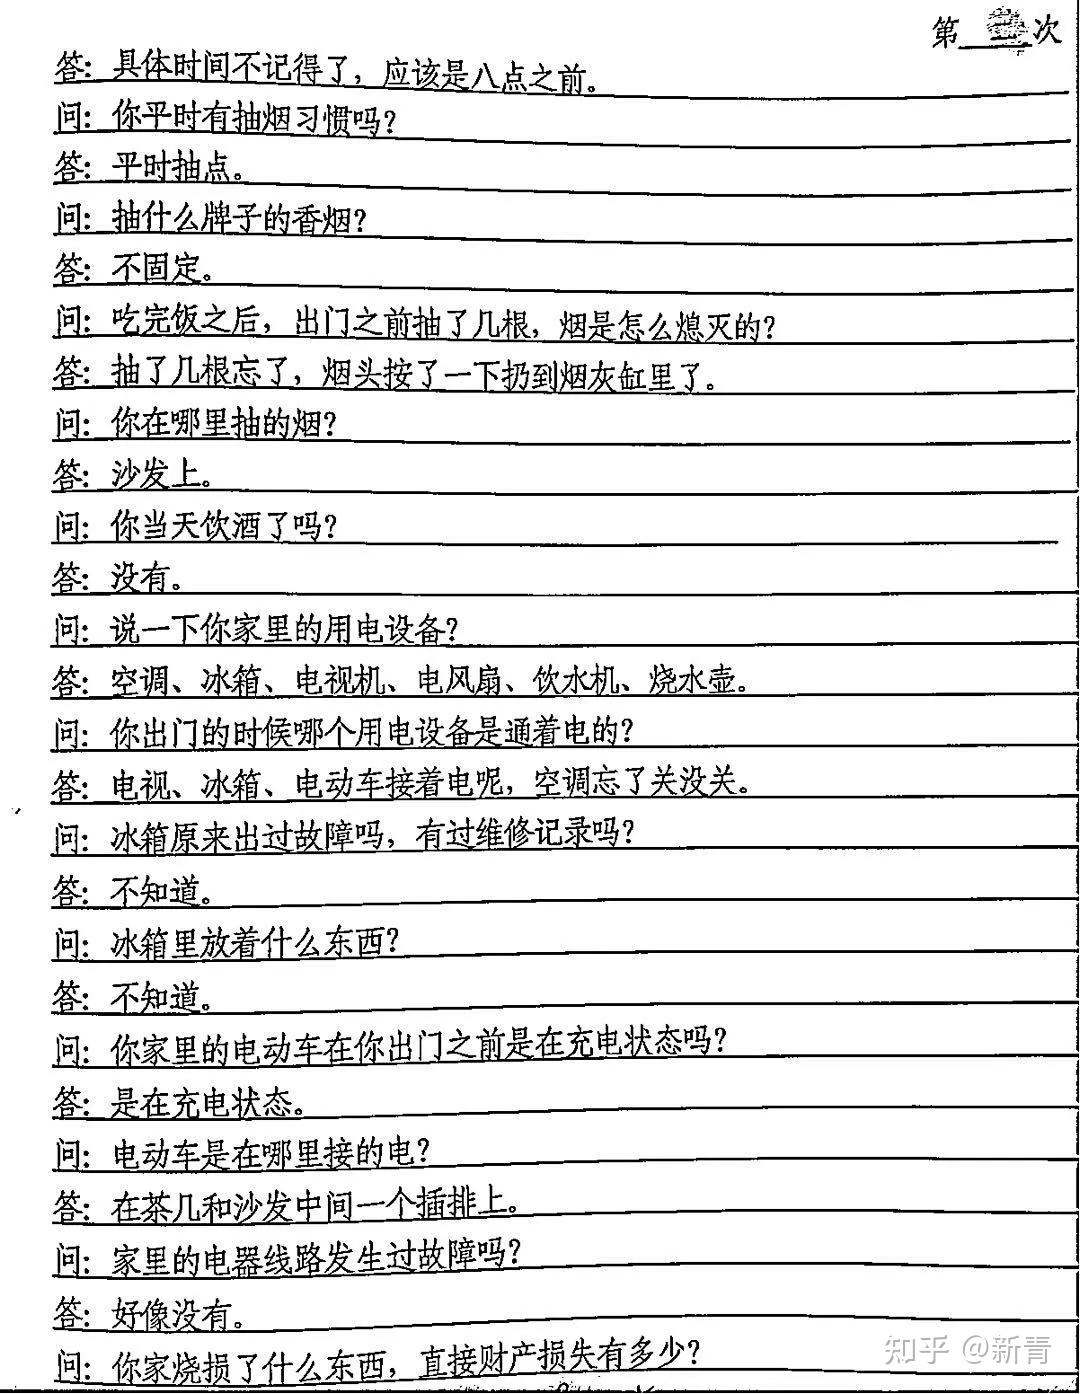 第二次
答：具体时间不记得了，应该是八点之前。
问：你平时有抽烟习惯吗？
答：平时抽点。
问：抽什么牌子的香烟？
答：不固定。
问：吃完饭之后，出门之前抽了几根，烟是怎么熄灭的？
答：抽了几根忘了，烟头按了一下扔到烟灰缸里了。
问：你在哪里抽的烟？
答：沙发上。
问：你当天饮酒了吗？
答：没有。
问：说一下你家里的用电设备？
答：空调、冰箱、电视机、电风扇、饮水机、烧水壶。
问：你出门的时候哪个用电设备是通着电的？
答：电视、冰箱、电动车接着电呢，空调忘了关没关。
问：冰箱原来出过故障吗，有过维修记录吗？
答：不知道。
问：冰箱里放着什么东西？
答：不知道。
问：你家里的电动车在你出门之前是在充电状态吗？
答：是在充电状态。
问：电动车是在哪里接的电？
答：在茶几和沙发中间一个插排上。
问：家里的电器线路发生过故障吗？
答：好像没有。
问：你家烧损了什么东西，直接财产损失有多少？
知乎 @新青